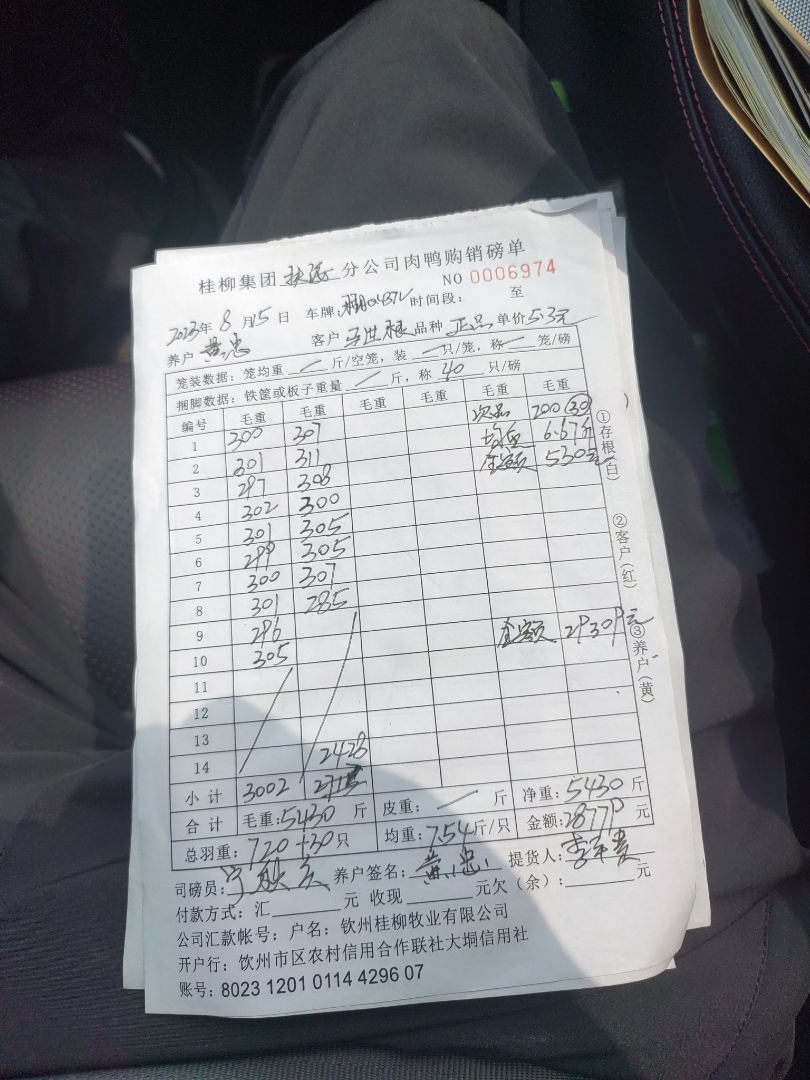 桂柳集团 扶绥 分公司肉鸭购销磅单
NO 0006974
2023年 8 月 15 日 车牌: 时间段: 至
养户 黄忠 客户 品种 正品 单价 5.3元
笼装数据: 笼均重 / 斤/空笼, 装 / 只/笼, 称 / 笼/磅
捆脚数据: 铁筐或板子重量 / 斤, 称 40 只/磅
编号 毛重 毛重 毛重 毛重 毛重 毛重
1 300 307 次品 200(30)
2 301 311 均重 6.67斤
3 297 308 金额 530元
4 302 300
5 301 305
6 299 305
7 300 307
8 301 285
9 296 金额 29309元
10 305
11
12
13
14 2428
小 计 3002
合 计 毛重: 5430 斤 皮重: / 斤 净重: 5430 斤
总羽重: 720+30 只 均重: 7.54 斤/只 金额: 28779 元
司磅员: 养户签名: 黄忠 提货人:
付款方式: 汇 元 收现 元欠(余): 元
公司汇款帐号: 户名: 钦州桂柳牧业有限公司
开户行: 钦州市区农村信用合作联社大垌信用社
账号: 8023 1201 0114 4296 07
①存根(白)
②客户(红)
③养户(黄)